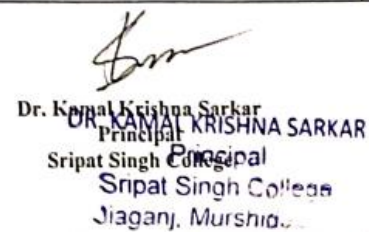 Dr. Kamal Krishna Sarkar
Principal
Sripat Singh College
DR. KAMAL KRISHNA SARKAR
Principal
Sripat Singh College
Jiaganj,